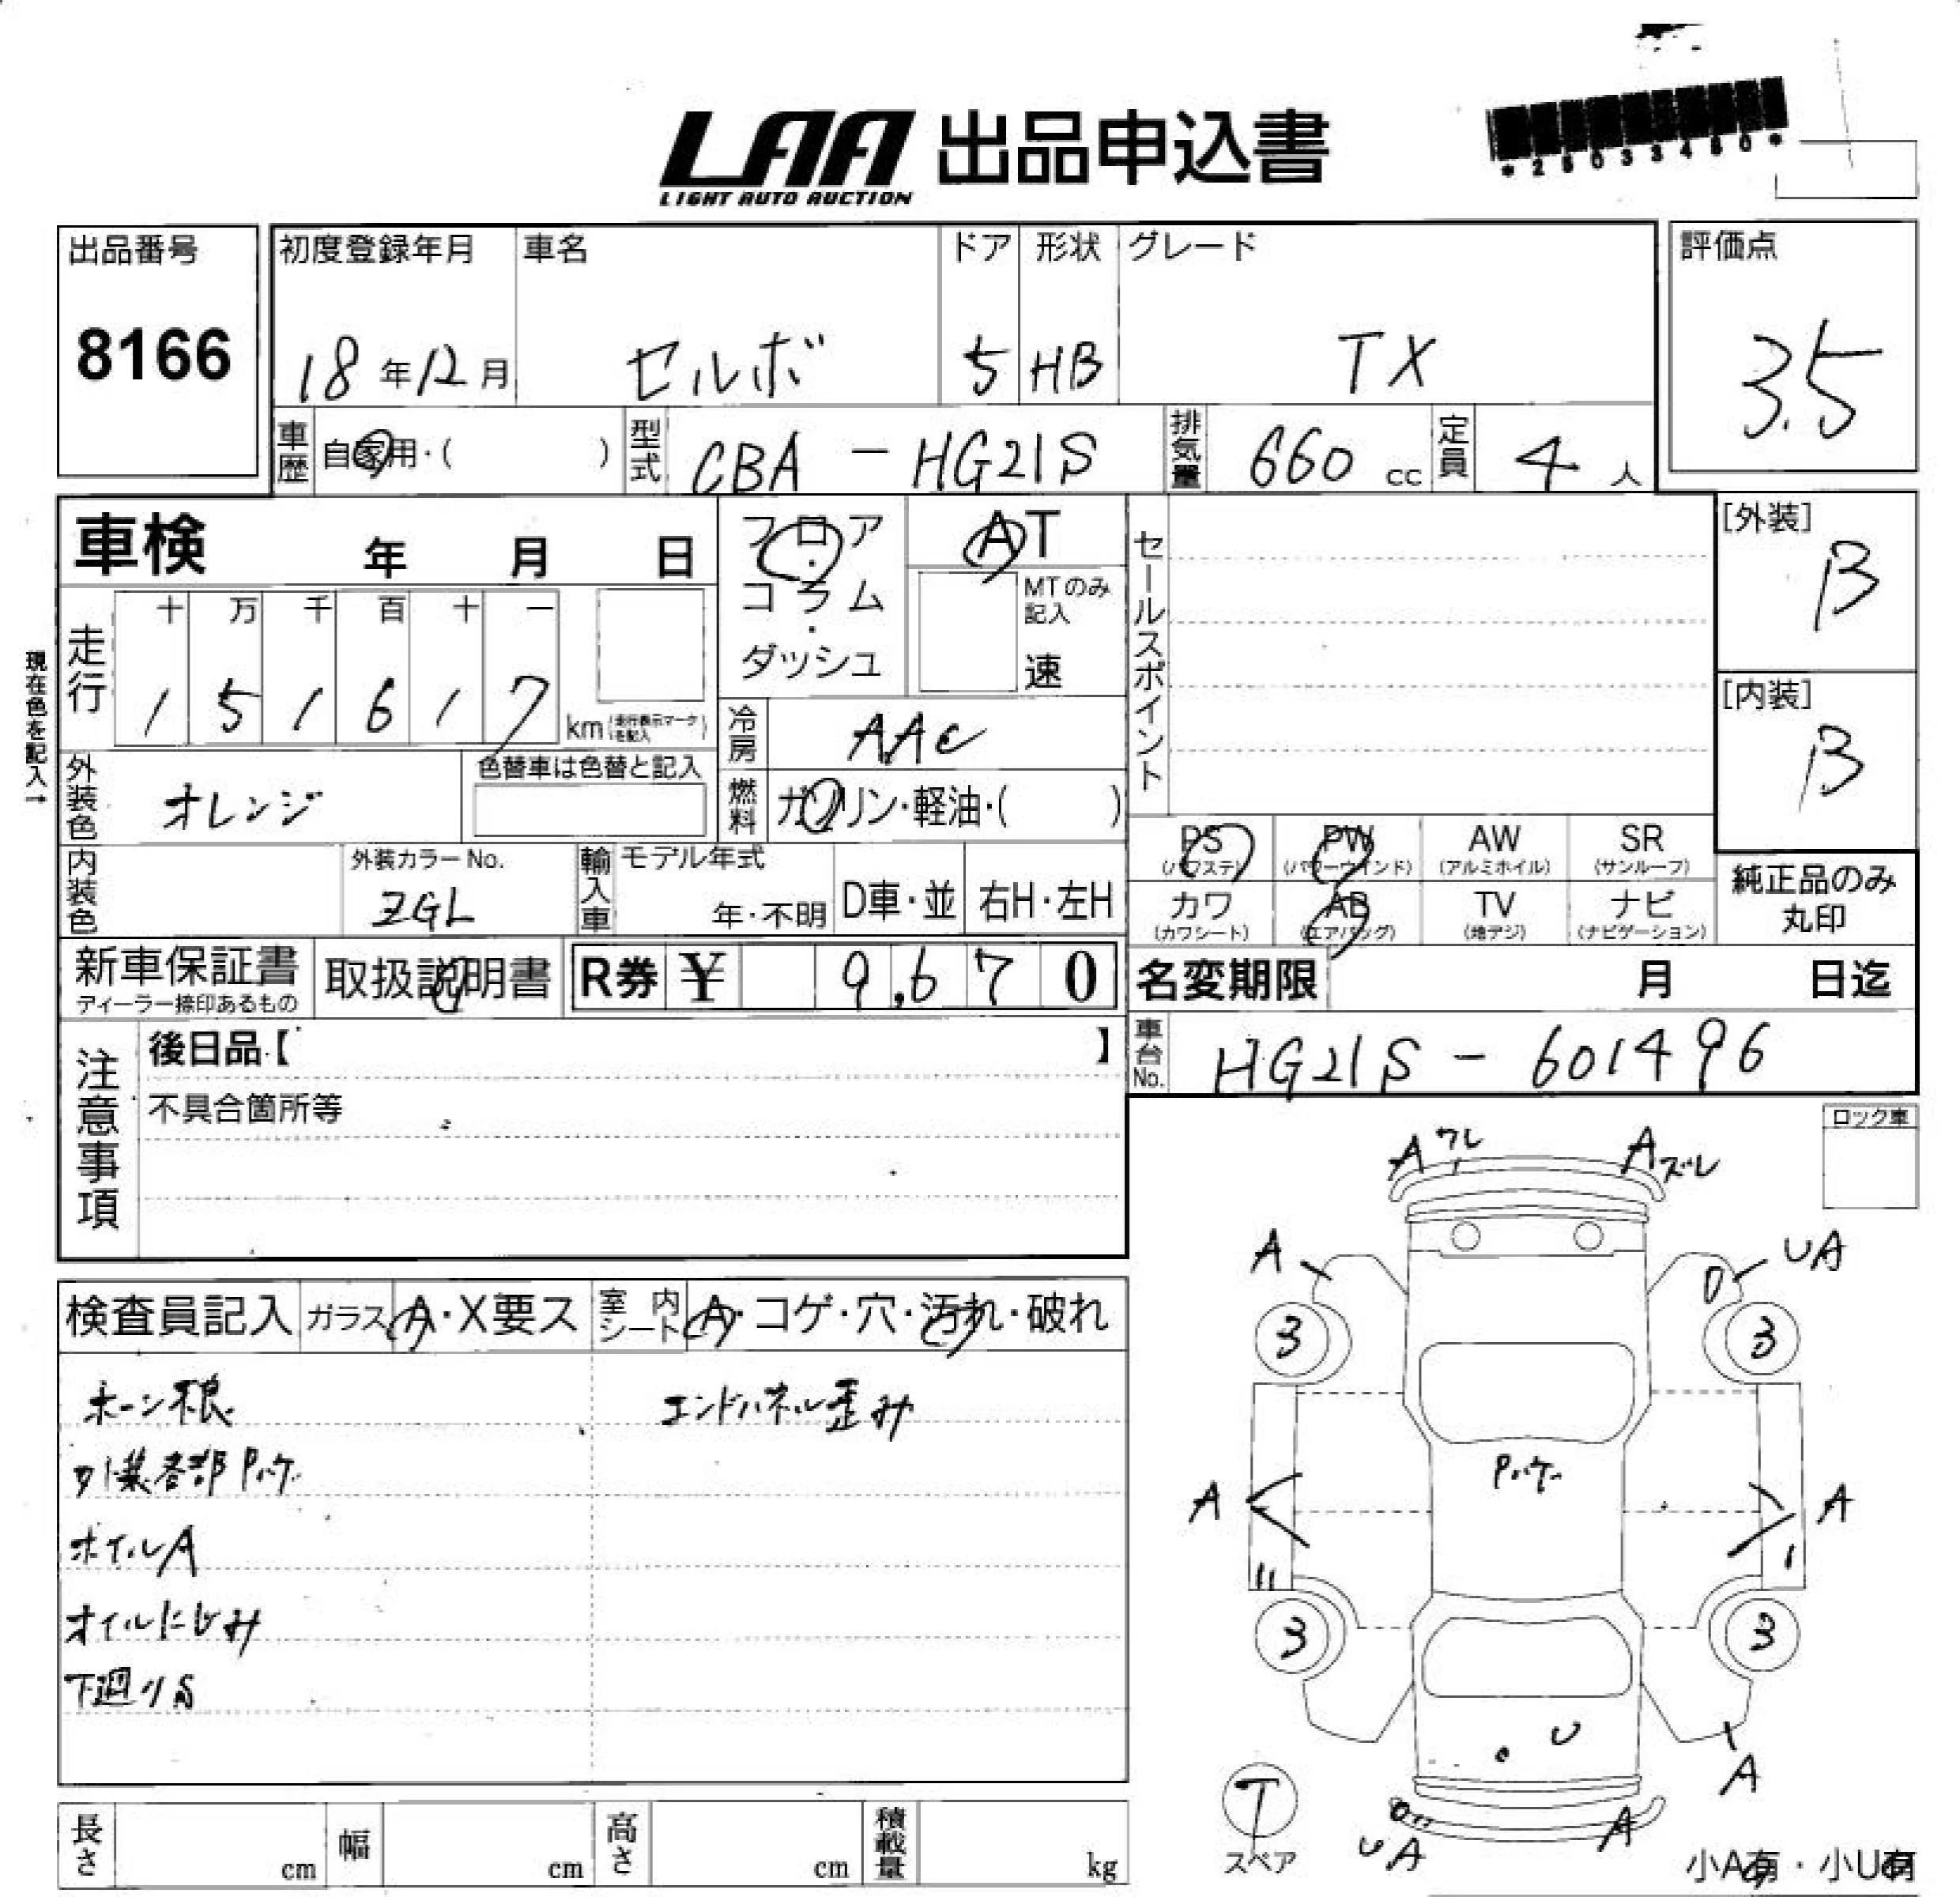 LAA 出品申込書
LIGHT AUTO AUCTION
*28033480*
出品番号 初度登録年月 車名 ドア 形状 グレード 評価点
8166 18年12月 セルボ 5 HB TX 3.5
車歴 自家用・( ) 型式 CBA - HG21S 排気量 660 cc 定員 4 人
車検 年 月 日
フロア・コラム・ダッシュ
AT
MTのみ記入
速
セールスポイント
[外装] B
[内装] B
現在色を記入→
走行 十 万 千 百 十 一
1 5 1 6 1 7 km (走行表示マークを記入)
冷房 AAC
外装色 オレンジ 色替車は色替と記入
燃料 ガソリン・軽油・( )
PS (パワステ) PW (パワーウインド) AW (アルミホイル) SR (サンルーフ)
カワ (カワシート) AB (エアバッグ) TV (地デジ) ナビ (ナビゲーション)
純正品のみ丸印
内装色 外装カラーNo. ZGL 輸入車 モデル年式 年・不明 D車・並 右H・左H
新車保証書 ディーラー捺印あるもの 取扱説明書 R券 ¥ 9,670 名変期限 月 日迄
車台No. HG21S - 601496
注意事項
後日品【 】
不具合箇所等
ロック車
検査員記入 ガラス A・X要ス 室内シート A・コゲ・穴・汚れ・破れ
ホーン不良 エンドパネル歪み
外装各部Pハケ
ホイルA
オイルにじみ
下廻りS
A ワレ A ズレ
A UA
3 3
Pハケ
A A
3 3
U
A
T スペア
UA A
小A有・小U有
長さ cm 幅 cm 高さ cm 積載量 kg